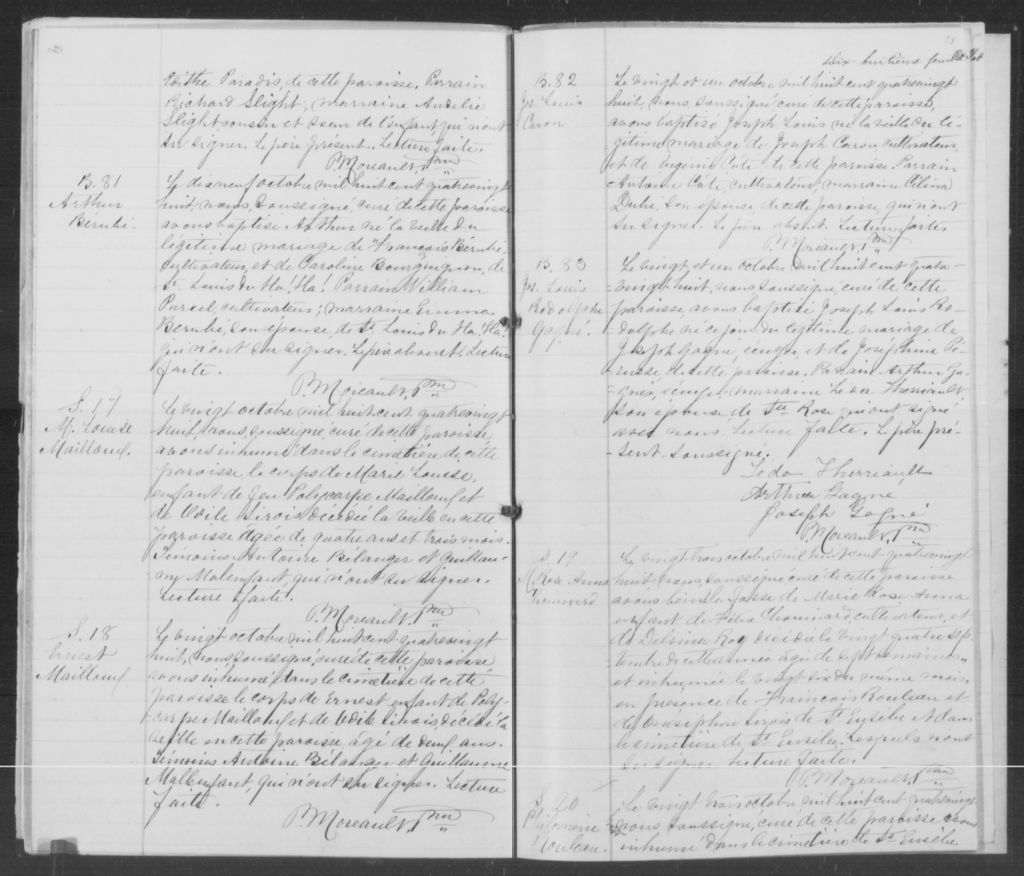 Edithe Paradis de cette paroisse. Parrain
Richard Slight, marraine Aurélie
Slight cousin et soeur de l'enfant qui n'ont
su signer. Le père présent. Lecture faite.
P. Moreault, Ptre
B. 81
Arthur
Bérubé.
Le dix neuf octobre mil huit cent quatrevingt
huit, nous, soussigné, curé de cette paroisse
avons baptisé Arthur né la veille du
légitime mariage de François Bérubé
cultivateur, et de Caroline Bourguignon, de
St. Louis du Ha! Ha! Parrain William
cultivateur; marraine Emma
Bérubé, son épouse de St. Louis du Ha! Ha!
qui n'ont su signer. Le père absent. Lecture
faite.
P. Moreault, Ptre
S. 17
M. Louise
Mailloux.
Le vingt octobre mil huit cent quatrevingt
huit, nous, soussigné, curé de cette paroisse,
avons inhumé dans le cimetière de cette
paroisse le corps de Marie Louise,
enfant de feu Polycarpe Mailloux et
de Odile Sirois décédée la veille en cette
paroisse âgée de quatre ans et trois mois.
Témoins Antoine Bélanger et Guillau-
me Malenfant, qui n'ont su signer.
Lecture faite.
P. Moreault, Ptre
S. 18
Ernest
Mailloux
Le vingt octobre mil huit cent quatrevingt
huit, nous soussigné, curé de cette paroisse
avons inhumé dans le cimetière de cette
paroisse le corps de Ernest enfant de Poly-
carpe Mailloux et de Odile Sirois décédé la
veille en cette paroisse, âgé de deux ans.
Témoins Antoine Bélanger et Guillaume
Mallenfant, qui n'ont su signer. Lecture
faite.
P. Moreault, Ptre
dix-huitième feuillet
B. 82
Jos. Louis
Caron
Le vingt et un octobre mil huit cent quatrevingt
huit, nous, soussigné curé de cette paroisse,
avons baptisé Joseph Louis né la veille du lé-
gitime mariage de Joseph Caron cultivateur,
et de Eugénie Côté de cette paroisse. Parrain
Antoine Côté, cultivateur, marraine Célina
Dubé son épouse, de cette paroisse, qui n'ont
su signer. Le père absent. Lecture faite.
P. Moreault, Ptre
B. 83
Jos. Louis
Rodolphe
Gagné.
Le vingt et un octobre mil huit cent quatre-
vingt huit, nous, soussigné, curé de cette
paroisse, avons baptisé Joseph Louis Ro-
dolphe né ce jour du légitime mariage de
Joseph Gagné, écuyer, et de Joséphine
de cette paroisse. Parrain Arthur Ga-
gné, écuyer, marraine Leda Therriault
son épouse de Ste Rose qui ont signé
avec nous. Lecture faite. Le père pré-
sent soussigné.
Leda Therriault
Arthur Gagné
Joseph Gagné
P. Moreault, Ptre
S. 19
M. Rose Anna
Chouinard
Le vingt trois octobre mil huit cent quatrevingt
huit, nous, soussigné curé de cette paroisse,
avons béni la fosse de Marie Rose Anna
enfant de Félix Chouinard, cultivateur, et
de Delvina Roy décédée le vingt quatre sep-
tembre de cette année âgée de sept semaines
et inhumée le vingt six du même mois,
en présence de François Rouleau et
de Onésiphore Sirois de St Eusèbe et dans
le cimetière de St. Eusèbe. Lesquels n'ont
su signer. Lecture faite.
P. Moreault, Ptre
S. 20
Rouleau.
Le vingt trois octobre mil huit cent quatrevingt
nous soussigné, curé de cette paroisse avons
inhumé dans le cimetière de St Eusèbe